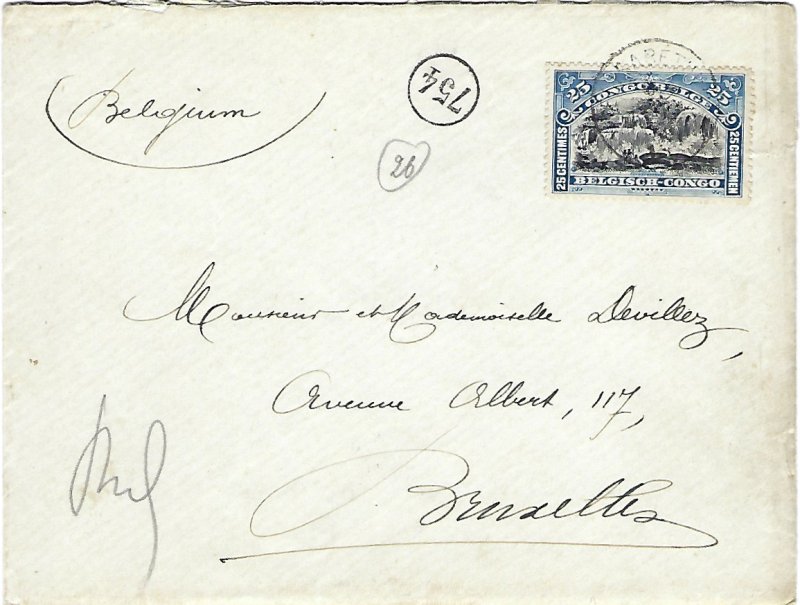 Belgium
754
26
25 CONGO BELGE 25
25 CENTIMES
25 CENTIEMEN
BELGISCH-CONGO
Monsieur et Mademoiselle Devillez,
Avenue Albert, 117,
Bruxelles